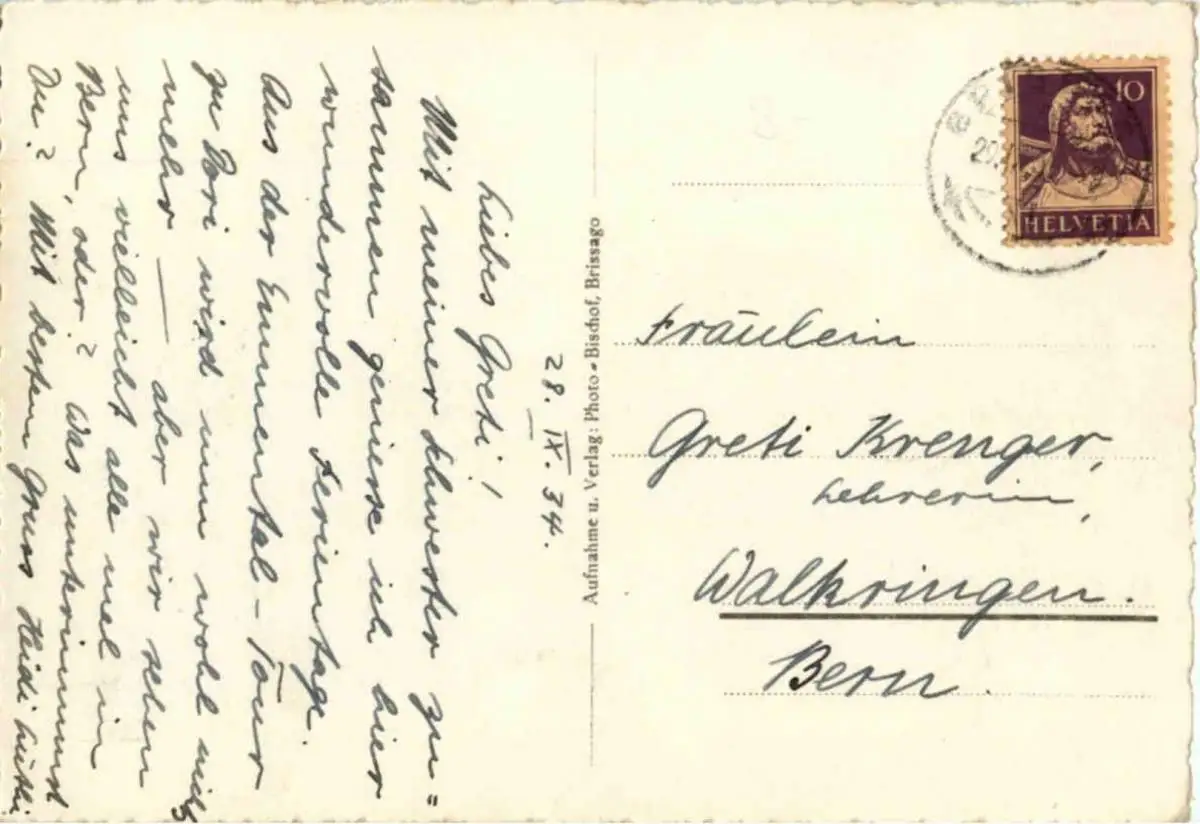 28. IX. 34.
Liebes Greti!
Mit meiner Schwester zu=
sammen geniesse ich hier
wundervolle Ferientage.
Aus der Emmental-Tour
zu Dori wird nun wohl nichts
mehr — aber wir sehen
uns vielleicht alle mal in
Bern, oder? Was unternimmst
Du? Mit bestem Gruss Heidi Lüthi
Aufnahme u. Verlag: Photo-Bischof, Brissago
10
HELVETIA
Fräulein
Greti Krenger,
Lehrerin,
Walkringen.
Bern.